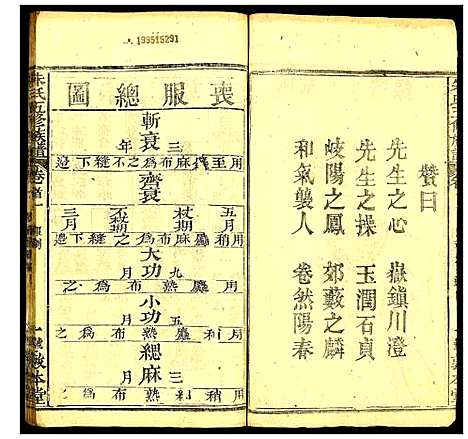 贊曰
先生之心　嶽鎮川澄
先生之操　玉潤石貞
岐陽之鳳　郊藪之麟
和氣襲人　卷然陽春
199515291
喪服總圖
斬衰
三年
用至麤麻布為之不縫下邊
齊衰
五月
杖期
不杖期
三月
用稍麤麻布為之縫下邊
大功
九月
用麤熟布為之
小功
五月
用稍麤熟布為之
緦麻
三月
用稍細熟布為之
朱氏五修族譜
卷首一
敬本堂